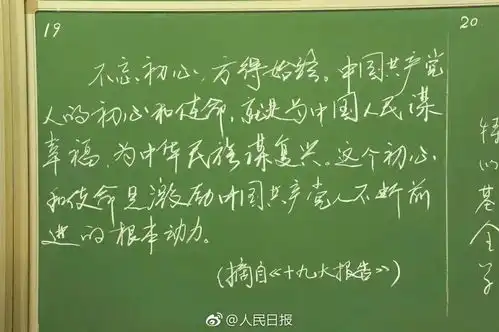 19
20
不忘初心，方得始终。中国共产党
人的初心和使命，就是为中国人民谋
幸福，为中华民族谋复兴。这个初心
和使命是激励中国共产党人不断前
进的根本动力。
（摘自《十九大报告》）
的
基
全
@人民日报